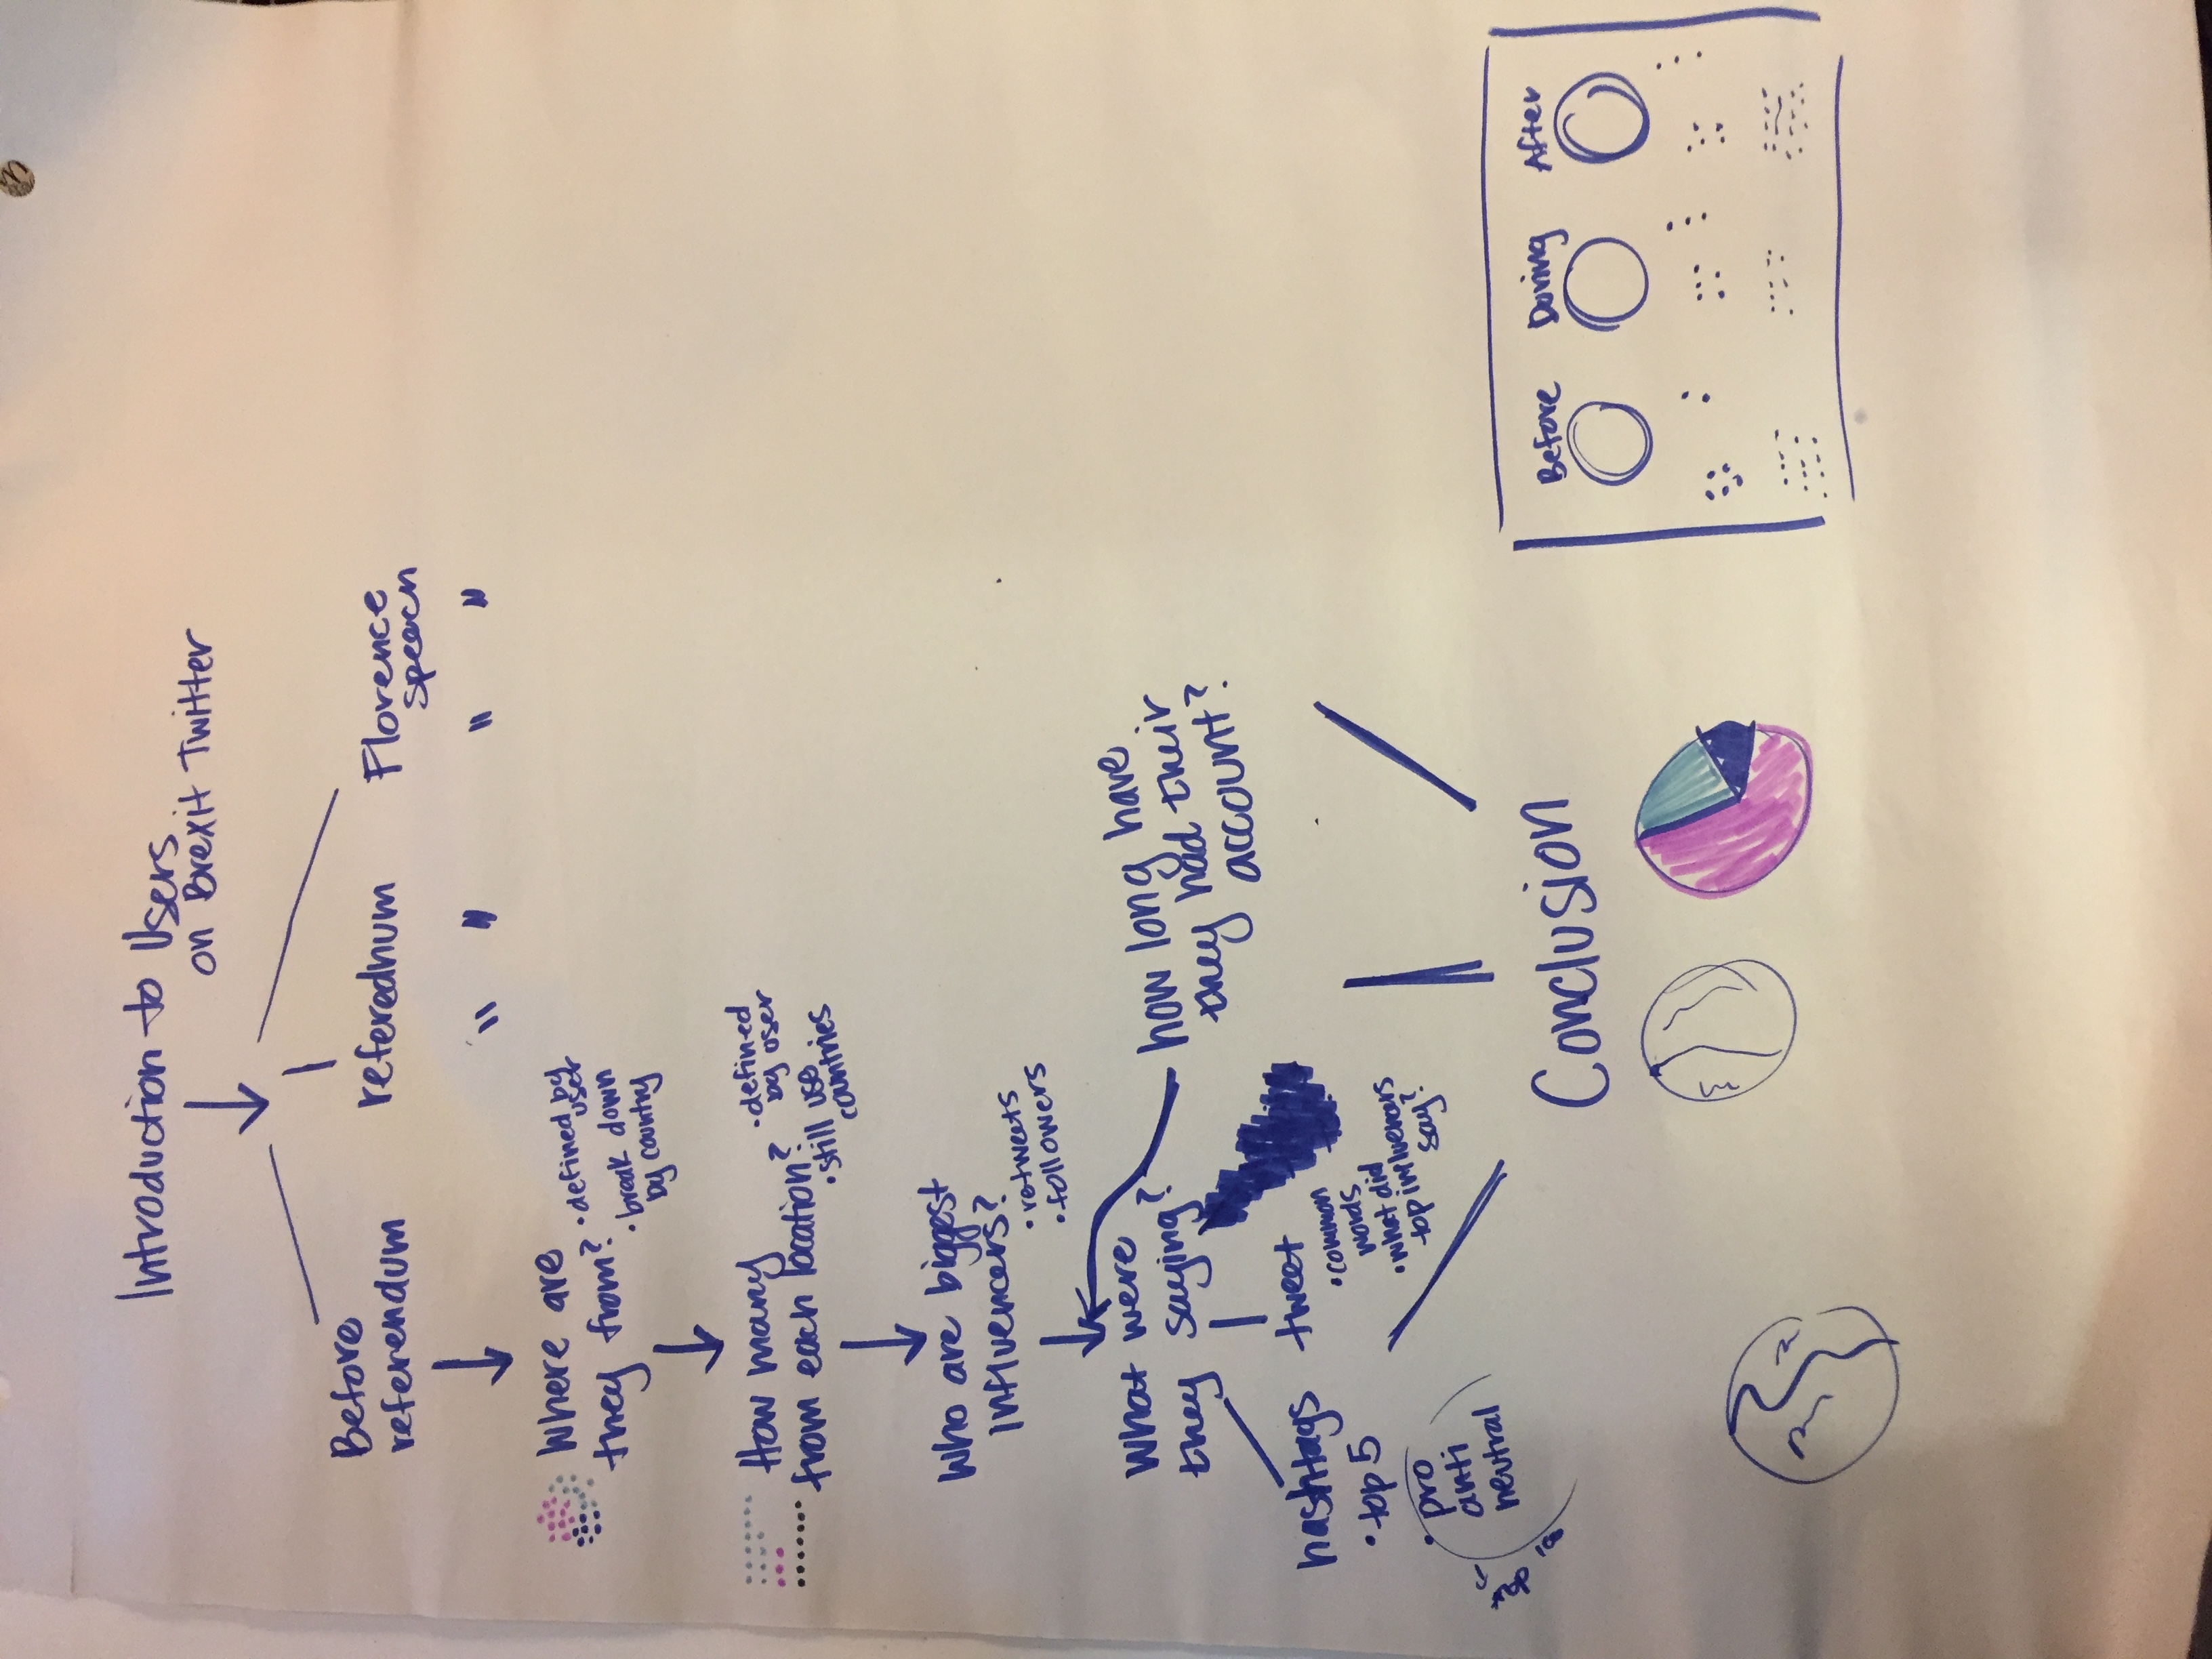 Introduction to Users
on Brexit Twitter
Before
referendum
referednum
Florence
speech
" "
" "
Where are
they from?
• defined by
user
• break down
by country
How many
from each location?
• defined
by user
• still use
countries
Who are biggest
influencers?
• retweets
• followers
What were
they saying?
how long have
they had their
account?
hashtags
• top 5
• pro
anti
neutral
tweet
• common
words
• what did
top influencers
say?
Conclusion
Before During After